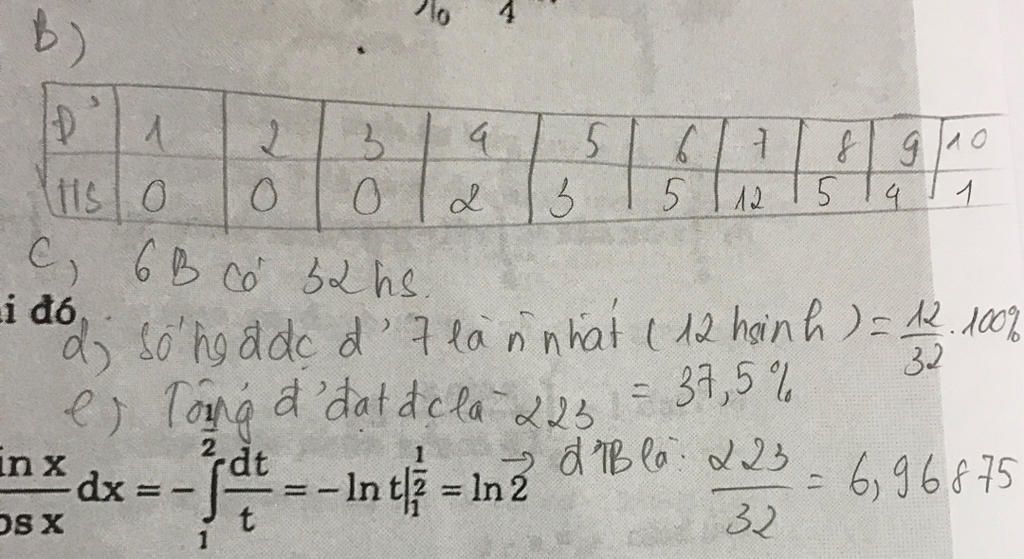 B)
Đ' 1 2 3 4 5 6 7 8 9 10
HS 0 0 0 2 3 5 12 5 4 1
C, 6B có 32 hs.
i đó.
d, Số hs đ đc đ' 7 là n nhất (12 hsinh) = 12/32 . 100%
= 37,5%
e, Tổng đ' đạt đc là 223
đTB là: 223/32 = 6,96875
in x/os x dx = - ∫₁^(1/2) dt/t = - ln t|₁^(1/2) = ln 2